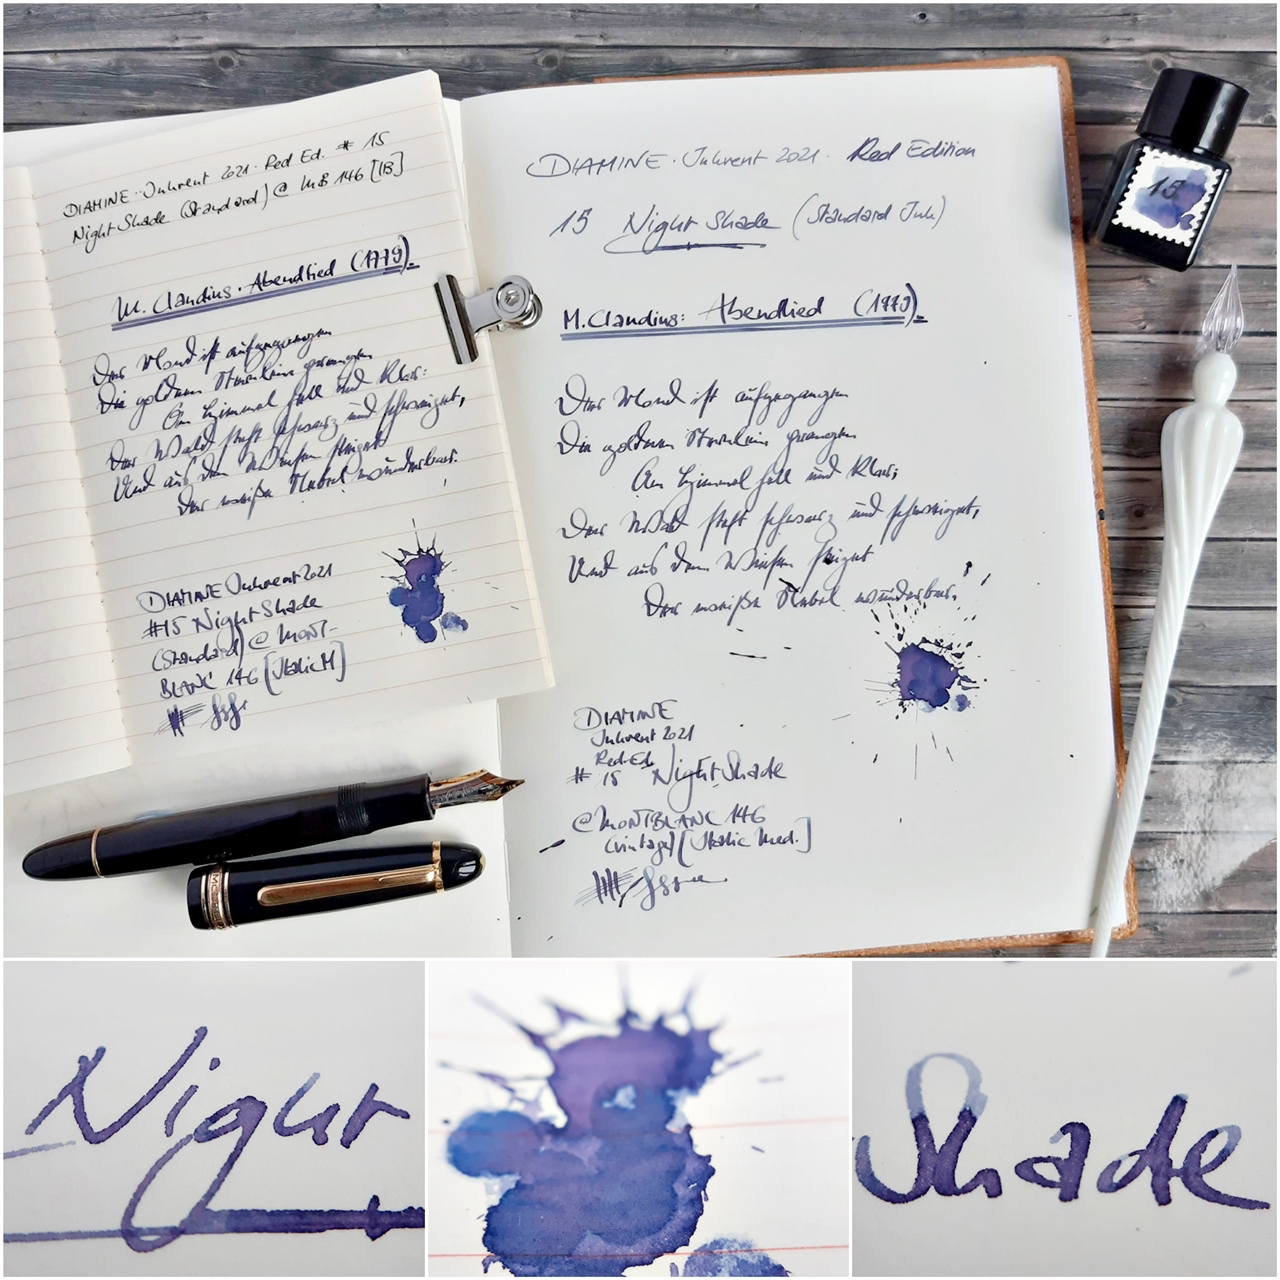 DIAMINE · Inkvent 2021 · Red Ed. # 15
Night Shade (Standard) @ MB 146 [IB]
M. Claudius · Abendlied (1779).
Der Mond ist aufgegangen
Die goldnen Sternlein prangen
Am Himmel hell und klar:
Der Wald steht schwarz und schweiget,
Und aus den Wiesen steiget
Der weiße Nebel wunderbar.
DIAMINE Inkvent 2021
#15 Night Shade
(Standard) @ MONT-
BLANC 146 [Italic M]
DIAMINE · Inkvent 2021 · Red Edition
15 Night Shade (Standard Ink)
M. Claudius: Abendlied (1779).
Der Mond ist aufgegangen
Die goldnen Sternlein prangen
Am Himmel hell und klar;
Der Wald steht schwarz und schweiget,
Und aus den Wiesen steiget
Der weiße Nebel wunderbar.
DIAMINE
Inkvent 2021
Red Ed.
# 15 Night Shade
@ MONTBLANC 146
(vintage) [Italic Med.]
15
Night
Shade